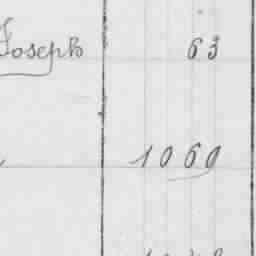 Joseph 63
1060